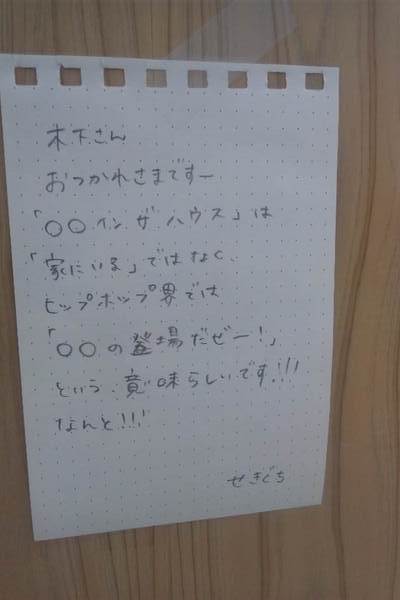 木下さん
おつかれさまですー
「〇〇インザハウス」は
「家にいる」ではなく、
ヒップホップ界では
「〇〇の登場だぜー!」
という、意味らしいです!!!
なんと!!!
せきぐち